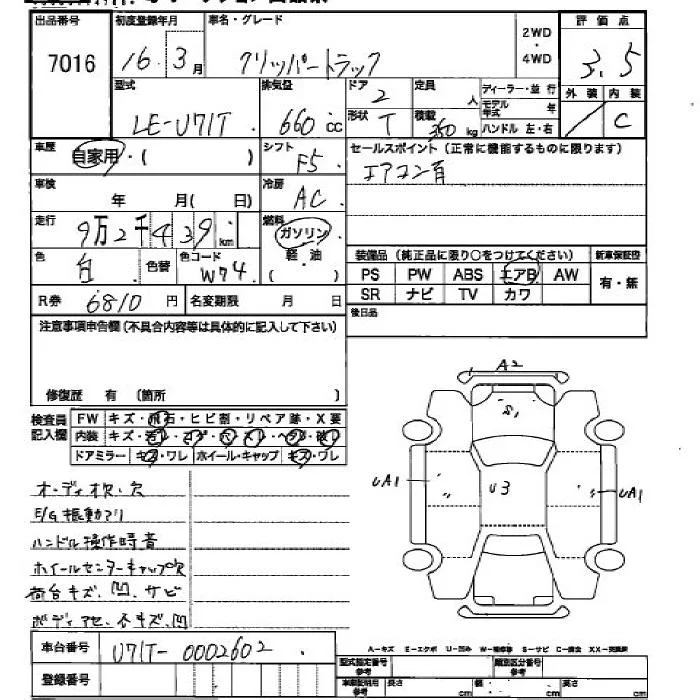 出品番号 初度登録年月 車名・グレード 2WD・4WD 評価点
7016 16年3月 クリッパートラック 3.5
型式 排気量 ドア 2 定員 人 ディーラー・並行 外装 内装
LE-U71T 660cc 形状 T 積載 350kg モデル年式 年 ハンドル 左・右 C
車歴 自家用・( ) シフト F5 セールスポイント(正常に機能するものに限ります)
エアコン有
車検 年 月( 日) 冷房 AC
走行 9万2千439km 燃料 ガソリン 軽・油 ( )
装備品(純正品に限り○をつけてください) 新車保証書
色 白 色替 色コード W74
PS PW ABS エアB AW 有・無
SR ナビ TV カワ
R券 6810円 名変期限 月 日
後日品
注意事項申告欄(不具合内容等は具体的に記入して下さい)
修復歴 有 (箇所 )
検査員記入欄 FW キズ・飛石・ヒビ割・リペア跡・X要
内装 キズ・
ドアミラー キズ・ワレ ホイール・キャップ キズ・ワレ
A2
S1
UA1 U3 UA1
オーディオ欠、欠
E/G振動アリ
ハンドル操作時音
ホイールセンターキャップ欠
荷台キズ、凹、サビ
ボディアセ、小キズ、凹
車台番号 U71T-0002602
登録番号
A-キズ E-エクボ U-凹み W-補修跡 S-サビ C-腐食 XX-交換歴
型式指定番号 参考 類別区分番号 参考
車庫証明用 参考 長さ cm 幅 cm 高さ cm